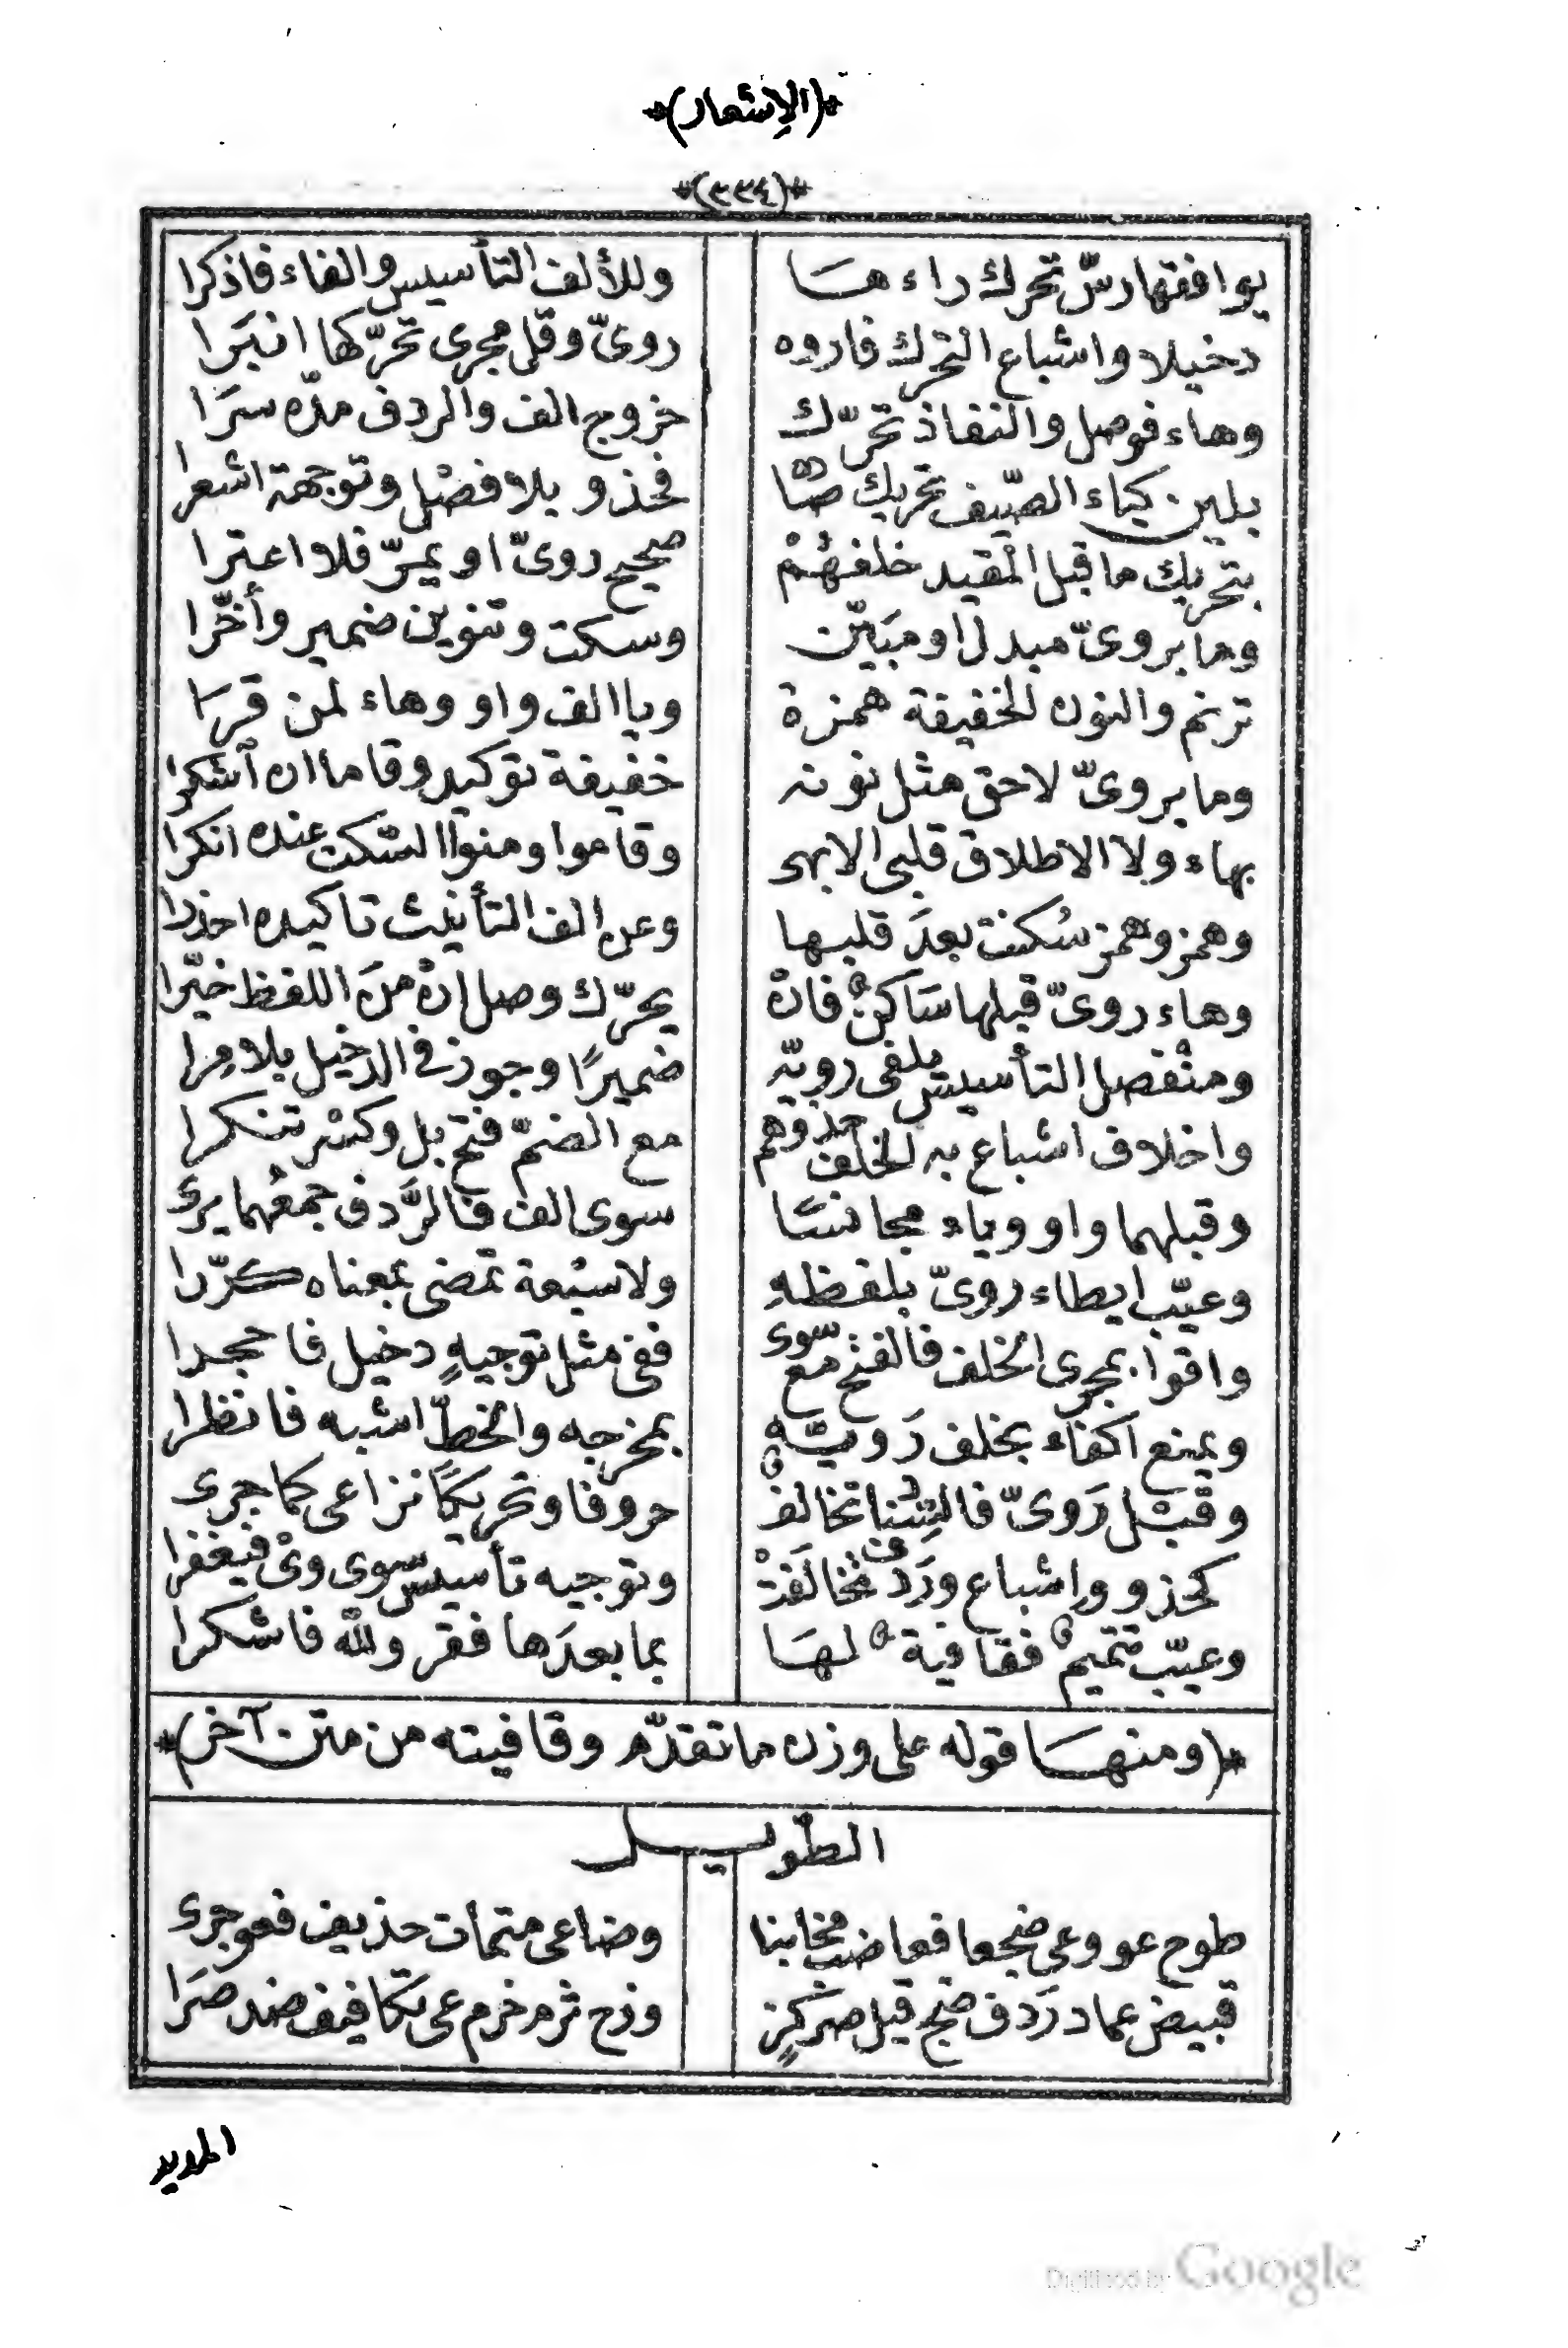 *(الاشعار)*
*(٣٣٤)*
يوافقها رسّ تحرك راء هسا وللألف التأسيس والفاء فاذكرا
دخيلا واشباع التحرك فاروه روىّ وقل مجرى تحرّكها انبَرا
وهاء فوصل والنفاذ تحرّك خروج الف والردف مدّه سرَا
بلين كياء الصيّف تحريك فحذو بلا فصل وتوجهة اشعرا
بتحريك ما قبل المقيد خلفهُمْ صحيح روىّ او يمرّ فلا اعترا
وما بروىّ مبدل او مبَيّن وسكت وتنوين ضمير وأخّرا
ترنم والنون الخفيفة همزة ويا الف واو وهاء لمن قرا
وما بروىّ لاحق مثل نونه خفيفة توكيد وقاما ان
بهاء ولا الاطلاق قلبى الابهى وقاموا ومنوا السّكت عنده انكرا
وهمز وهمز سُكنت بعدَ قلبها وعن الف التأنيث تاكيده احذرا
وهاء روىّ قبلها سَاكن فان يحرّك وصل ان منَ اللفظ خيّرا
ومنْفصل التأسيس يلفى رويّه ضميرًا وجوز فى الدخيل بلا مِرا
واخلاف اشباع به الخلف حذوهم مع الضمّ فتح بل وكسْر تنكرا
وقبلهما واو وياء مجانسًا سوى الف فالرَّدف جمعُهما يرى
وعيّب ايطاء روىّ بلفظهِ ولا سبْعة تمضى بمعناه كرّرا
واقوا بمجرى الخلف فالفتح مع سوى ففى مثل توجيهٍ دخيل فا حجرا
ويمنع اكفاء بخلف رَويّه بمخرجه والخطّ اشبه فانظرا
وقبْل رَوىّ فالسّنا تخالف حروفا وتحريكًا نزاعى كما جرى
كحذو واشباع ورَدف مُخالَفَتْ وتوجيه تأسيْس سوى وىْ فيغفرا
وعيّب تتميم فقافية لهَا بما بعدَها فقر ولله فاشكرا
*(ومنهسا قوله على وزن ما تقدّم وقافيته من متن آخر)*
الطويل
طوح عو وعى ضجعا فعاضب مخابنا وضاعى متمات حذيف فعو جرى
قبيض عماد رَدف ضج قيل وزح ثرم خرم عى تكافيف ضد ضرَا
المديد
Digitized by Google